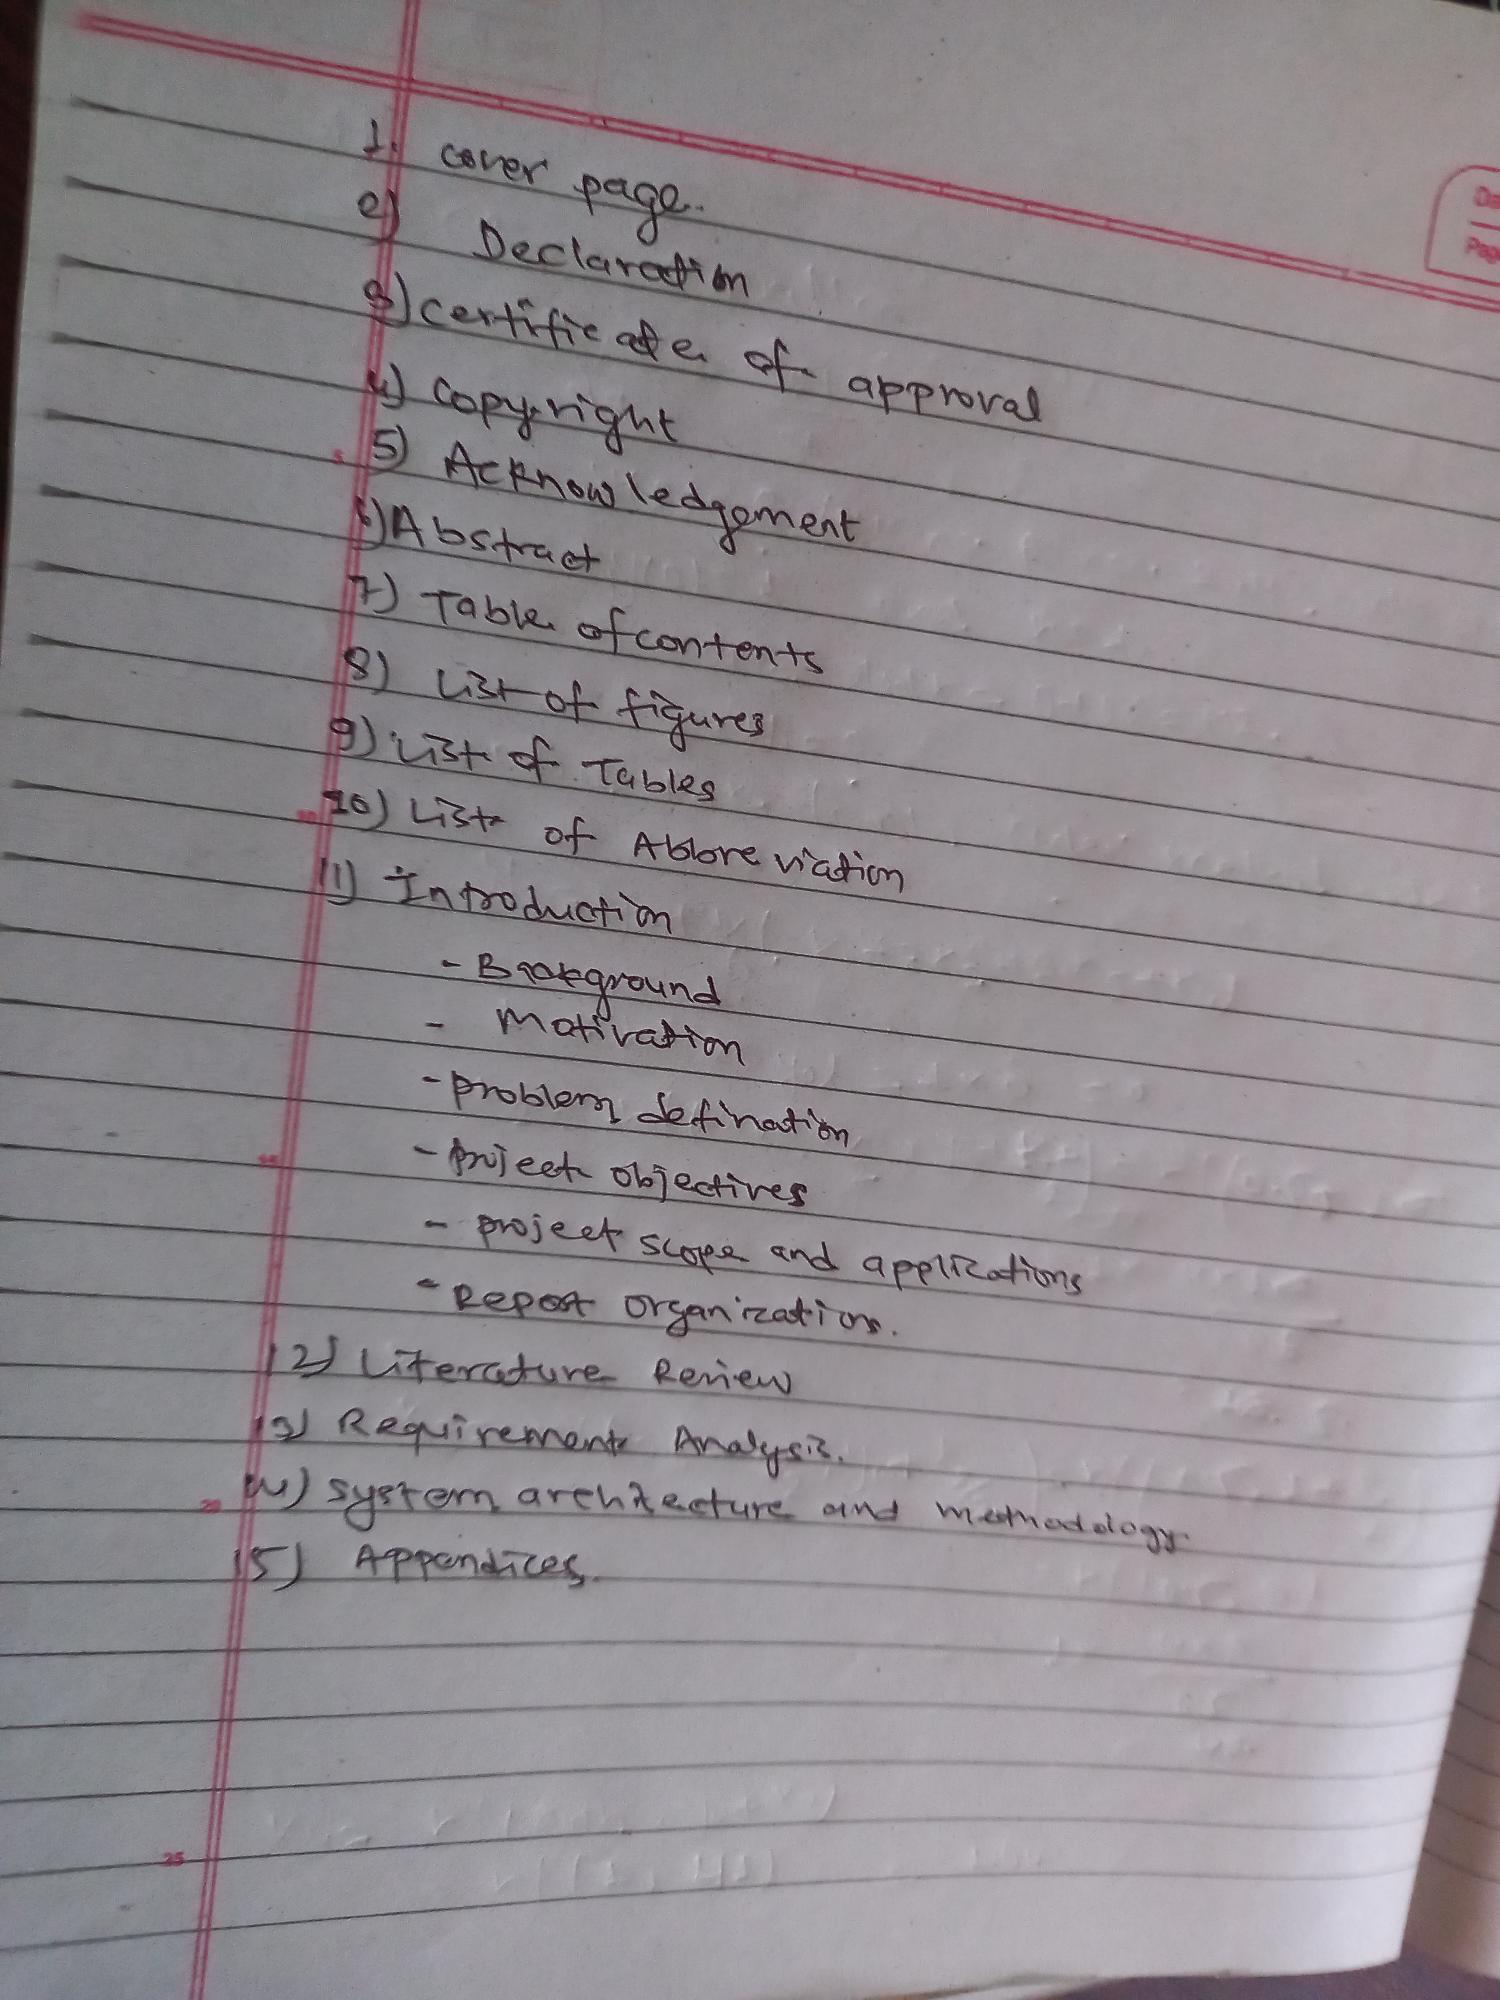 1. cover page.
2) Declaration
3) certificate of approval
4) Copyright
5) Acknowledgement
6) Abstract
7) Table of contents
8) List of figures
9) List of Tables
10) List of Abbreviation
11) Introduction
- Background
- Motivation
- problem defination
- project objectives
- project scope and applications
- Report organization.
12) Literature Review
13) Requirement Analysis.
14) system architecture and methodology.
15) Appendices.
25